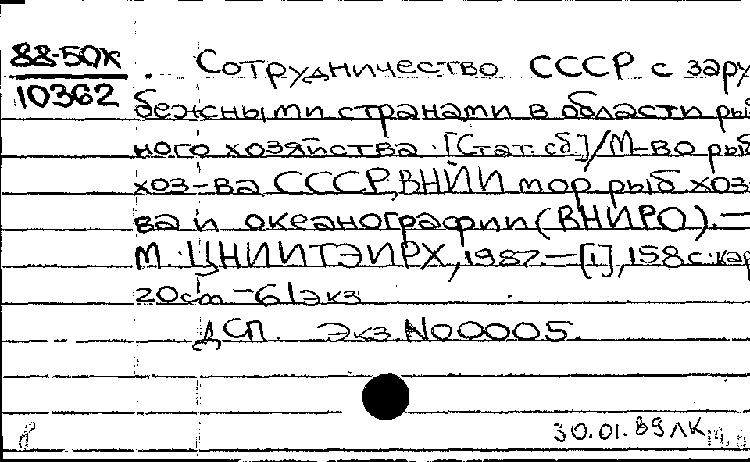 88-50К
10362
Сотрудничество СССР с зару
бежными странами в области рыб
ного хозяйства. [Стат. сб.]/М-во рыб
хоз-ва СССР, ВНИИ мор. рыб хоз-
ва и океанографии (ВНИРО). —
М. ЦНИИТЭИРХ, 1987. — [1], 158 с. кар
20 см — 61 экз
ДСП. Экз. N00005.
30.01.89 ЛК